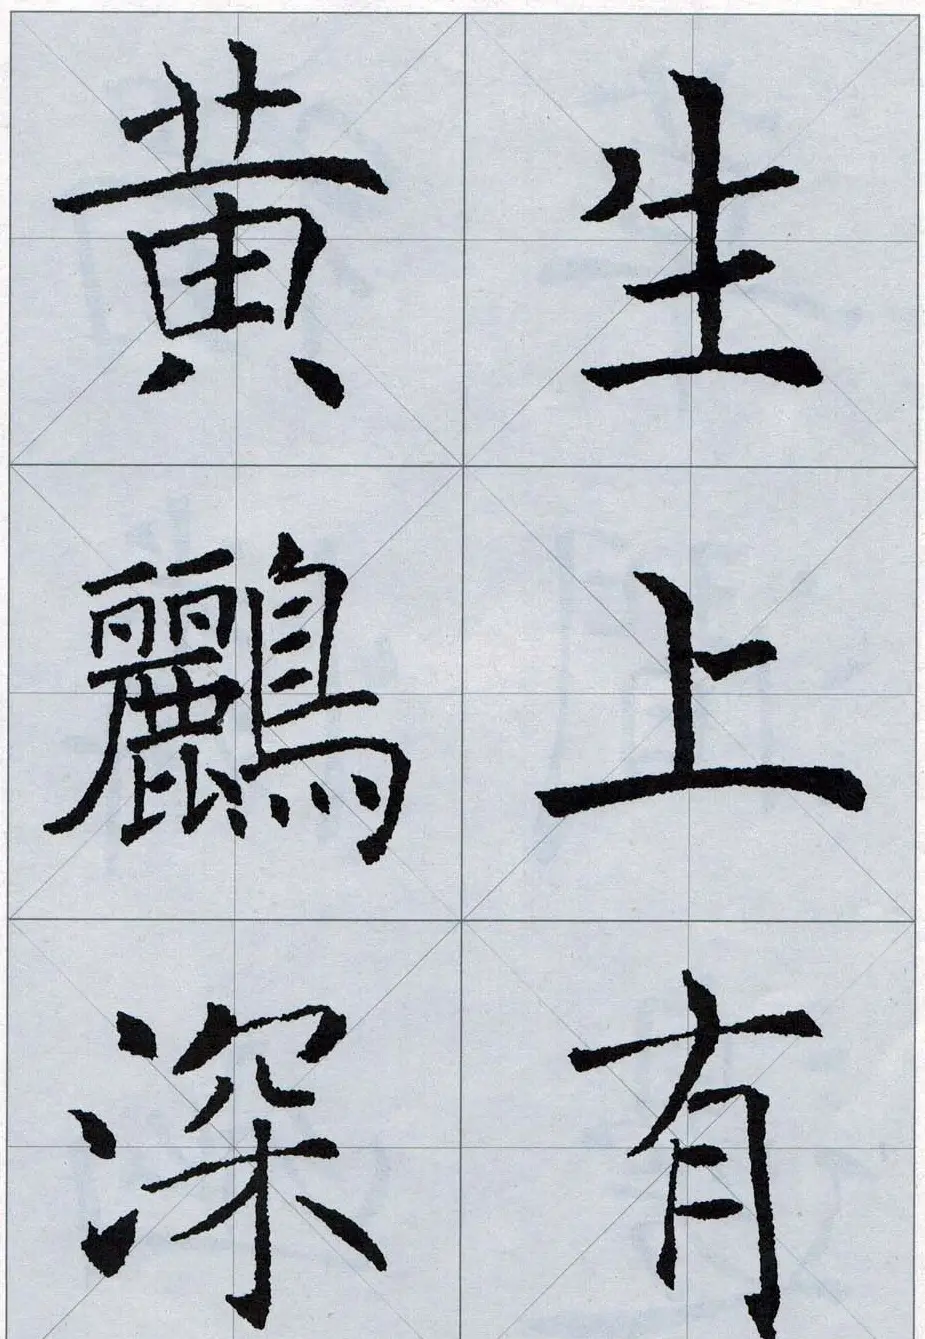 生上有
黃鸝深